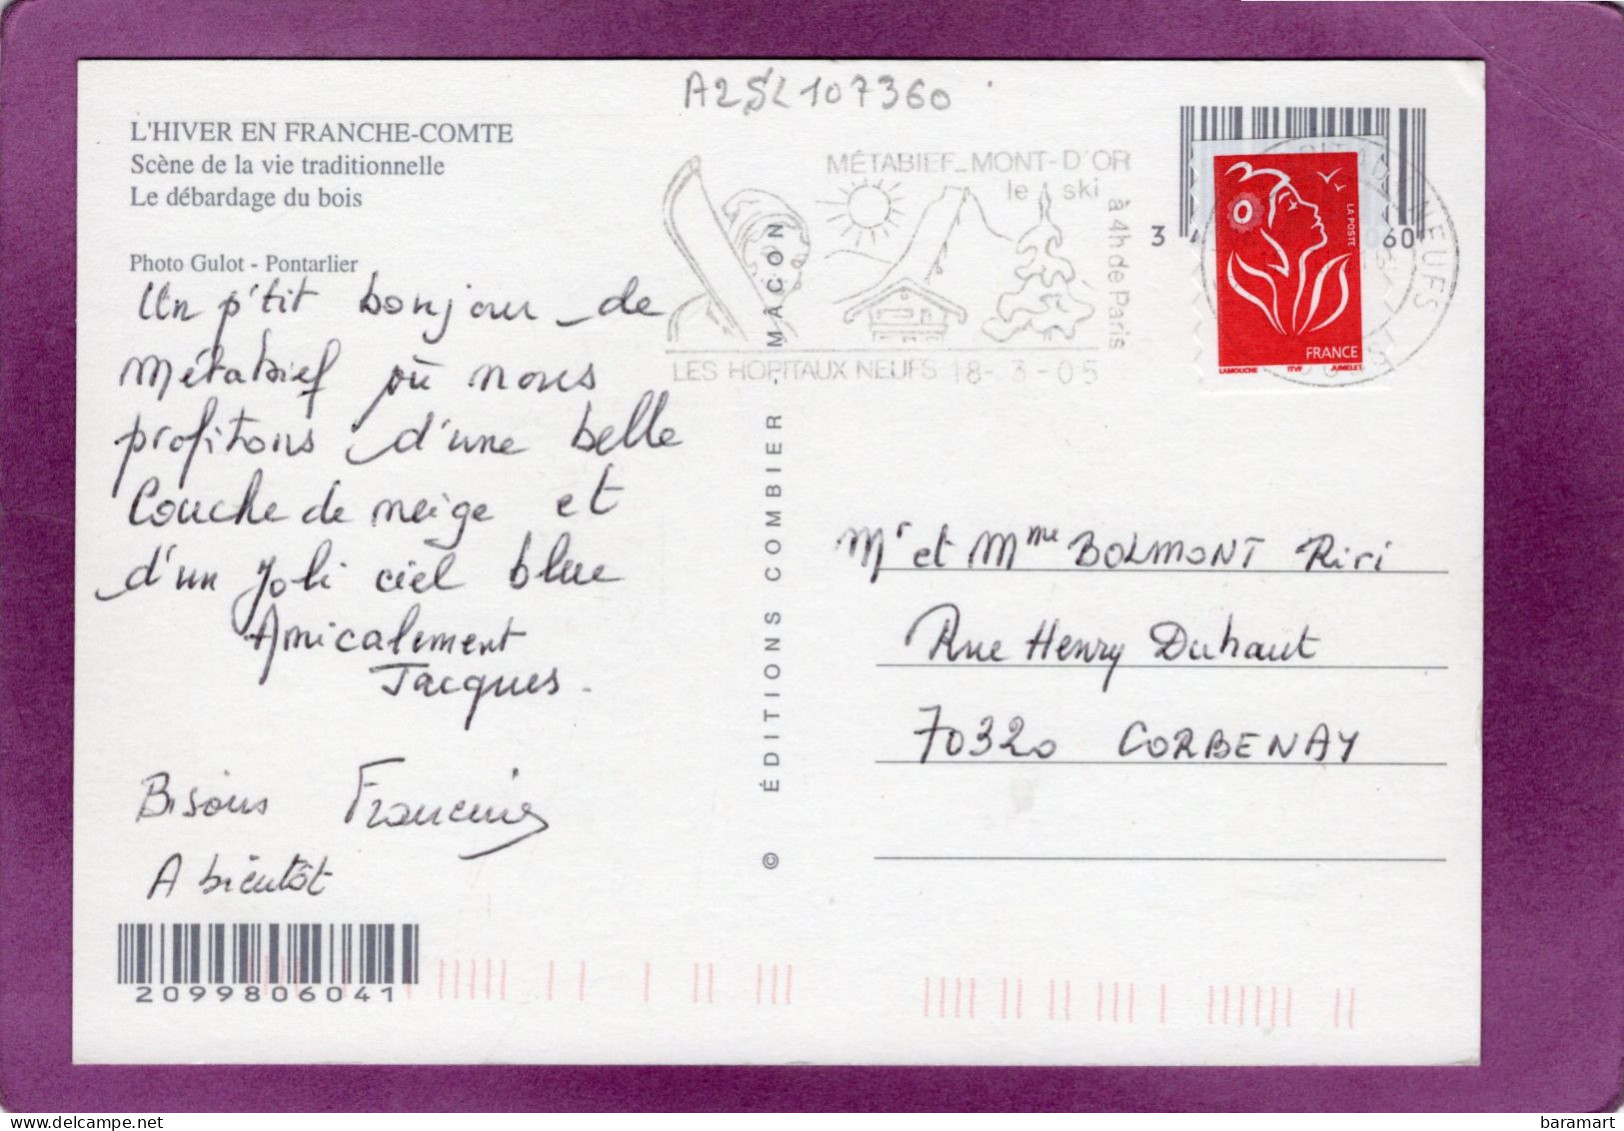 A2SL107360
L'HIVER EN FRANCHE-COMTE
Scène de la vie traditionnelle
Le débardage du bois
Photo Gulot - Pontarlier
Un p'tit bonjour de
Métabief où nous
profitons d'une belle
Couche de neige et
d'un Joli ciel bleue
Amicalement
Jacques.
Bisous Francine
A bientôt
2099806041
© ÉDITIONS COMBIER - MÂCON
MÉTABIEF_MONT-D'OR
le ski
à 4h de Paris
LES HOPITAUX NEUFS 18-3-05
3
60
LA POSTE
FRANCE
LAMOUCHE ITVF JUMELET
NEUFS
Mr et Mme BOLMONT Riri
Rue Henry Duhaut
70320 CORBENAY
baramart